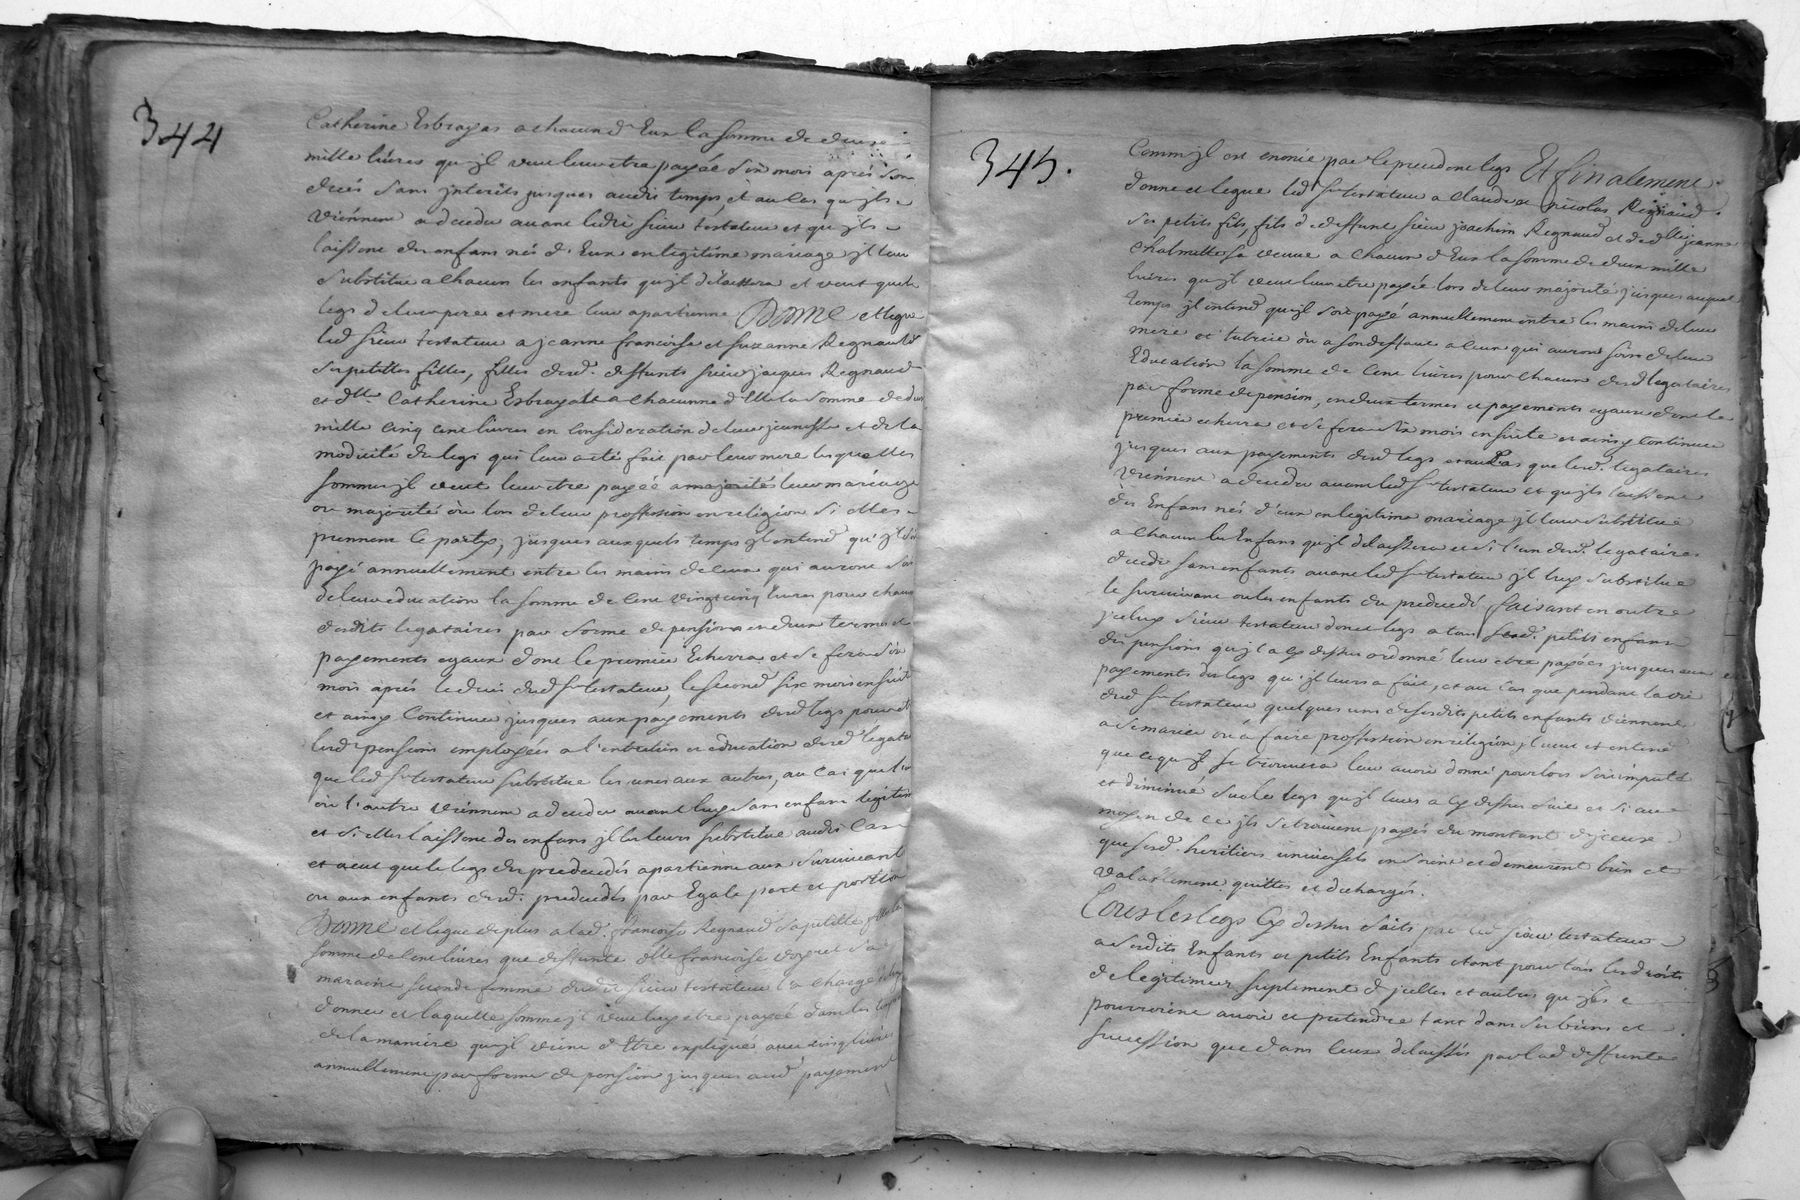 344
Catherine Esbrayas a chacun d'Eux la somme de deux
mille livres qu'jl veut leur etre payée six mois apres son
decés sans jnterets jusques audit temps, et au cas qu'jls
viennent a deceder avant ledit sieur testateur et qu'jls
laissent des enfans nés d'Eux en legitime mariage jl leur
substitue a chacun les enfants qu'jl delaissera et veut que le
legs de leur pere et mere leur apartienne Donne et legue
led sieur testateur a jeanne francoise et suzanne Regnauld
ses petittes filles, filles desd. deffunts sieur jacques Regnaud
et dlle Catherine Esbrayatt a chacunne d'Elle la somme de deux
mille cinq cent livres en consideration de leur jeunesse et de la
modicité du legs qui leur a eté fait par leur mere lesquelles
sommes jl veut leur etre payée a majorités leur mariage
ou majorité ou lors de leur proffession en religion si elles
prennent le party, jusques auxquels temps jl entend qu'jl soit
payé annuellement entre les mains de ceux qui auront soin
de leur education la somme de cent vingt cinq livres pour chacun
desdits legataires par forme de pension en deux termes et
payements egaux dont le premier Echerra et se fera six
mois aprés le decés dud sr testateur, le second six mois ensuite
et ainsy continuer jusques aux payements desd legs pour etre
lesd pensions employées a l'entretien et education desd legatai
que led sr testateur substitue les unes aux autres, au cas que l'un
ou l'autre viennent a deceder avant luy sans enfans legitim
et si elles laissent des enfans jl les leurs substitue audit cas
et veut que le legs des predecedés apartienne aux survivant
ou aux enfants desd. predecedés par Egale part et portion
Donne et legue de plus a lad. francoise Regnaud sa petitte fille la
somme de cent livres que deffunte dlle francoise voyret sa
maraine seconde femme dudit sieur testateur l'a chargé de luy
donner et laquelle somme jl veut luy etre payée dans les temps
de la maniere qu'jl vient d'Etre expliqué avec cinq livres
annuellement par forme de pension jusques aud payement
345.
Comm jl est enoncé par le precedent legs Et finalement
donne et legue led sr testateur a claude et nicolas Regnaud
ses petits fils, fils de deffunt sieur joachim Regnaud et de dlle jeanne
chalmette sa veuve a chacun d'Eux la somme de deux mille
livres qu'jl veut leur etre payée lors de leur majorité jusques auquel
temps jl entend qu'jl soit payé annuellement entre les mains de leur
mere et tutrice ou a son deffaut a ceux qui auront soin de leur
Education la somme de cent livres pour chacun desd legataires
par forme de pension, en deux termes et payements egaux dont le
premier echerra et se fera six mois ensuite et ainsy continuer
jusques aux payements desd legs et au cas que lesd. legataires
viennent a deceder avant led sr testateur et qu'jls laissent
des Enfans nés d'eux en legitime mariage jl leur substitue
a chacun les Enfans qu'jl delaissera et si l'un desd. legataires
decede sans enfants avant led sr testateur jl luy substitue
le survivant ou les enfants du predecedé faisant en outre
jceluy sieur testateur don et legs a tous sesd. petits enfans
des pensions qu'jl a cy dessus ordonné leur etre payées jusques aux
payements des legs qu'jl leurs a fait, et au cas que pendant la vie
dud sr testateur quelques uns de sesdits petits enfants viennent
a se marier ou a faire proffession en religion jl veut et entend
que ce qu'jl se trouvera leur avoir donné pour lors soit imputé
et diminué sur le legs qu'jl leurs a cy dessus fait et si au
moyen de ce jls se trouvent payés du montant d'jceux
que sesd. heritiers universels en soient et demeurent bien et
valablement quittes et dechargés.
Tous les legs Cy dessus faits par led sieur testateur
a sesdits Enfants et petits Enfants etant pour tous les droits
de legitimes suplement d'jcelles et autres qu'jls
pourroient avoir et pretendre tant dans ses biens et
succession que dans ceux delaissés par lad deffunte